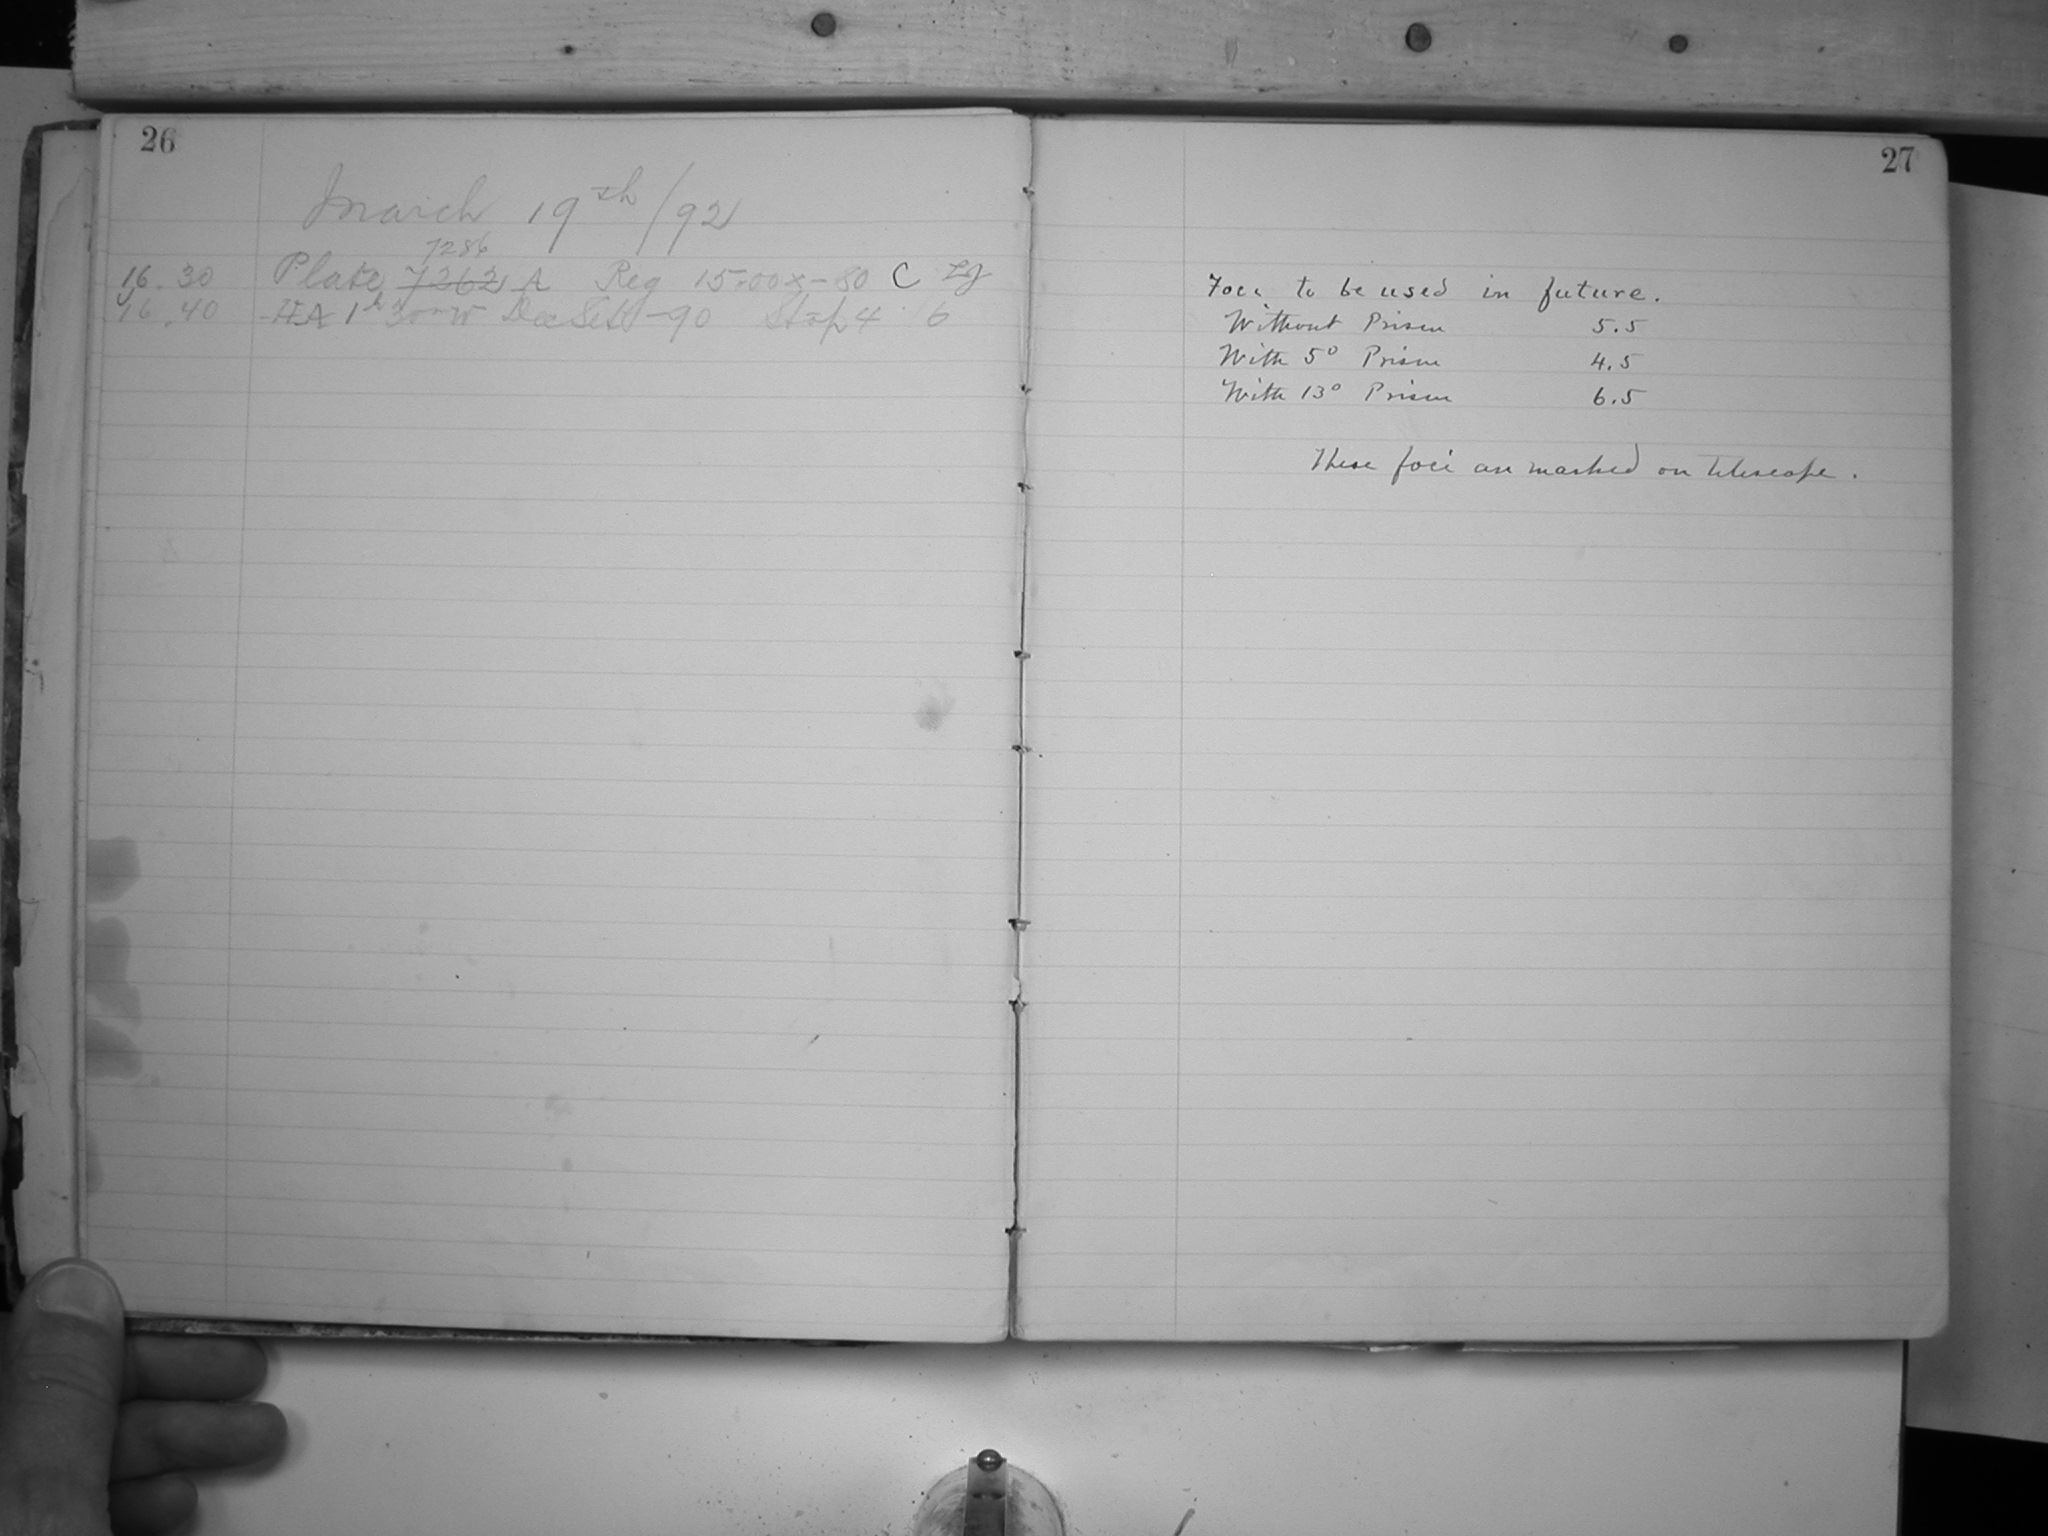 26
March 19th/92
7286
16.30 Plate 7262 A Reg 15-00 x-80 C
16.40 HA 1h 30m W Dec Set -90 Stop 4 6
27
Foci to be used in future.
Without Prism 5.5
With 5° Prism 4.5
With 13° Prism 6.5
These foci are marked on telescope.